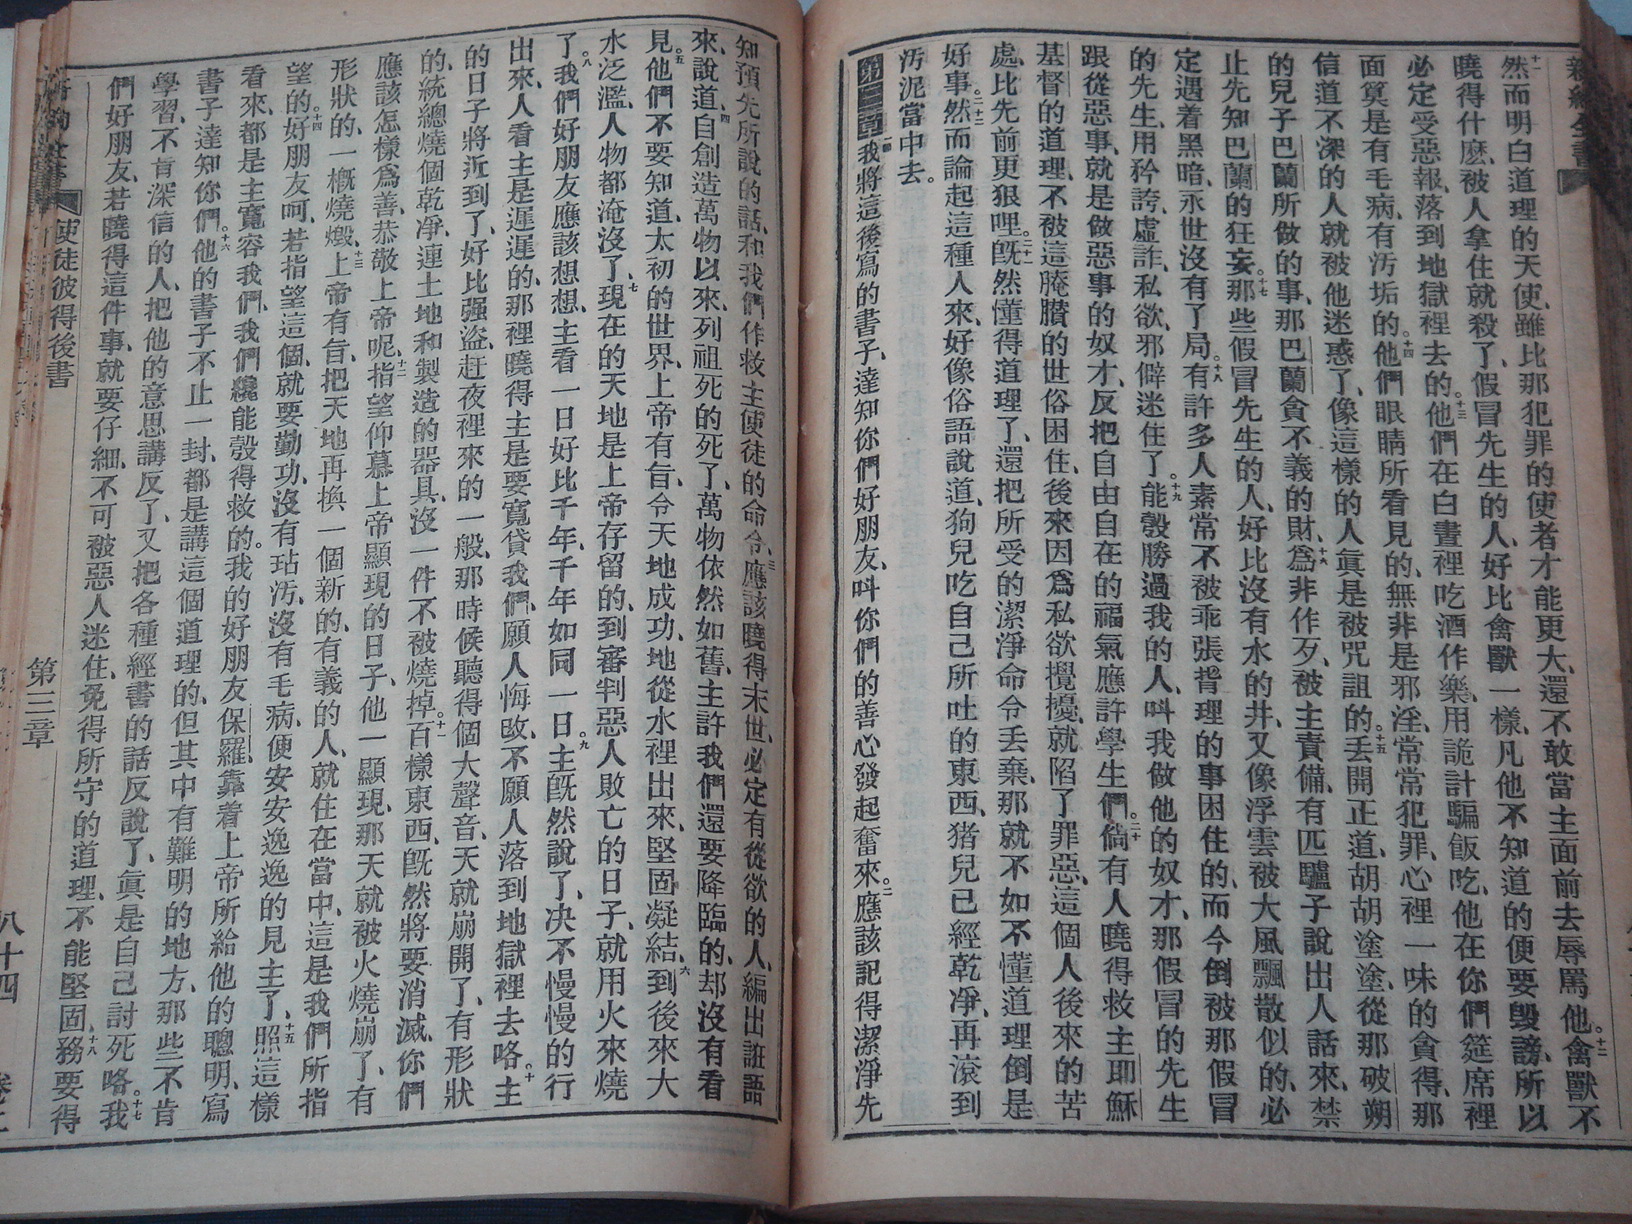 新約全書
十一然而明白道理的天使、雖比那犯罪的使者才能更大、還不敢當主面前去辱罵他。十二禽獸不
曉得什麽、被人拿住就殺了、假冒先生的人、好比禽獸一樣、凡他不知道的便要毁謗、所以
必定受惡報、落到地獄裡去的。十三他們在白晝裡吃酒作樂、用詭計騙飯吃、他在你們筵席裡
面眞是有毛病、有汚垢的。十四他們眼睛所看見的、無非是邪淫、常常犯罪、心裡一味的貪得、那
信道不深的人、就被他迷惑了、像這樣的人眞是被咒詛的。十五丟開正道、胡胡塗塗、從那破朔
的兒子巴蘭所做的事、那巴蘭貪不義的財。十六爲非作歹、被主責備、有匹驢子說出人話來、禁
止先知巴蘭的狂妄。十七那些假冒先生的人、好比沒有水的井、又像浮雲被大風飄散似的、必
定遇着黑暗、永世沒有了局。十八有許多人素常不被乖張背理的事困住的、而今倒被那假冒
的先生、用矜誇虛詐、私欲邪僻迷住了。十九能彀勝過我的人、呌我做他的奴才、那假冒的先生
跟從惡事、就是做惡事的奴才、反把自由自在的福氣應許學生們。二十倘有人曉得救主耶穌
基督的道理、不被這腌臢的世俗困住、後來因爲私欲攪擾、就陷了罪惡、這個人後來的苦
處、比先前更狠哩。二十一旣然懂得道理了、還把所受的潔淨命令丟棄、那就不如不懂道理倒是
好事。二十二然而論起這種人來、好像俗語說道、狗兒吃自己所吐的東西、猪兒已經乾淨、再滾到
汚泥當中去。
第三章一節我將這後寫的書子、達知你們好朋友、呌你們的善心發起奮來。二應該記得潔淨先
知預先所說的話、和我們作救主使徒的命令、三應該曉得末世、必定有從欲的人、編出誑語
來、四說道、自創造萬物以來、列祖死的死了、萬物依然如舊、主許我們還要降臨的、却沒有看
見。五他們不要知道、太初的世界、上帝有旨、令天地成功、地從水裡出來、堅固凝結、六到後來大
水泛濫、人物都淹沒了、七現在的天地、是上帝存留的、到審判惡人敗亡的日子、就用火來燒
了。八我們好朋友應該想想、主看一日好比千年、千年如同一日。九主旣然說了、决不慢慢的行
出來、人看主是遲遲的、那裡曉得主是要寬貸我們、願人悔改、不願人落到地獄裡去咯。十主
的日子將近到了、好比强盜、赶夜裡來的一般、那時候聽得個大聲音、天就崩開了、有形狀
的、統總燒個乾淨、連土地和製造的器具、沒一件不被燒掉。十一百樣東西、旣然將要消滅、你們
應該怎樣爲善、恭敬上帝呢、十二指望仰慕上帝顯現的日子、他一顯現、那天就被火燒崩了、有
形狀的、一槪燒燬、十三上帝有旨、把天地再換一個新的、有義的人、就住在當中、這是我們所指
望的。十四好朋友呵、若指望這個、就要勤功、沒有玷汚、沒有毛病、便安安逸逸的見主了、十五照這樣
看來、都是主寬容我們、我們纔能彀得救的。我的好朋友保羅、靠着上帝所給他的聰明、寫
書子達知你們。十六他的書子不止一封、都是講這個道理的、但其中有難明的地方、那些不肯
學習、不肯深信的人、把他的意思講反了、又把各種經書的話反說了、眞是自己討死咯。十七我
們好朋友、若曉得這件事、就要仔細、不可被惡人迷住、免得所守的道理、不能堅固、十八務要得
使徒彼得後書
第三章
八十四